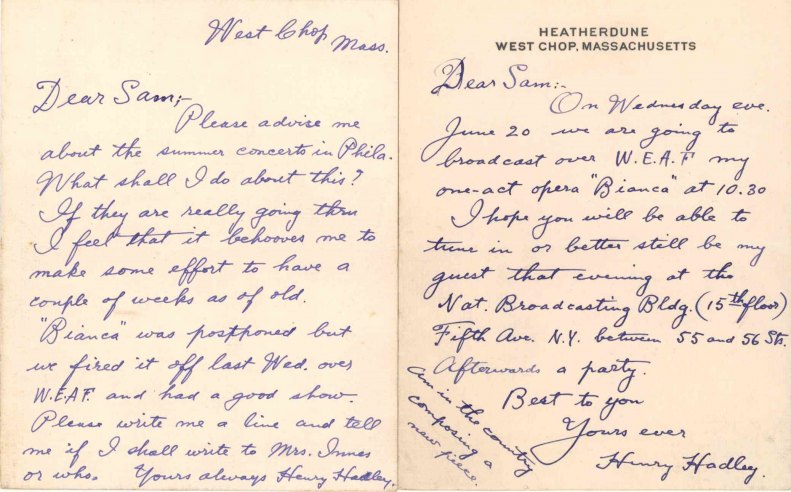 West Chop
Mass.
Dear Sam;-
Please advise me
about the summer concerts in Phila.
What shall I do about this?
If they are really going thru
I feel that it behooves me to
make some effort to have a
couple of weeks as of old.
"Bianca" was postponed but
we fired it off last Wed. over
W.E.A.F. and had a good show.
Please write me a line and tell
me if I shall write to Mrs. Innes
or who. Yours always Henry Hadley.
HEATHERDUNE
WEST CHOP, MASSACHUSETTS
Dear Sam:-
On Wednesday eve.
June 20 we are going to
broadcast over W.E.A.F my
one-act opera "Bianca" at 10.30
I hope you will be able to
tune in or better still be my
guest that evening at the
Nat. Broadcasting Bldg. (15th floor)
Fifth Ave. N.Y. between 55 and 56 Sts.
Afterwards a party.
Best to you
Yours ever
Henry Hadley.
am in the country
composing a
new piece.